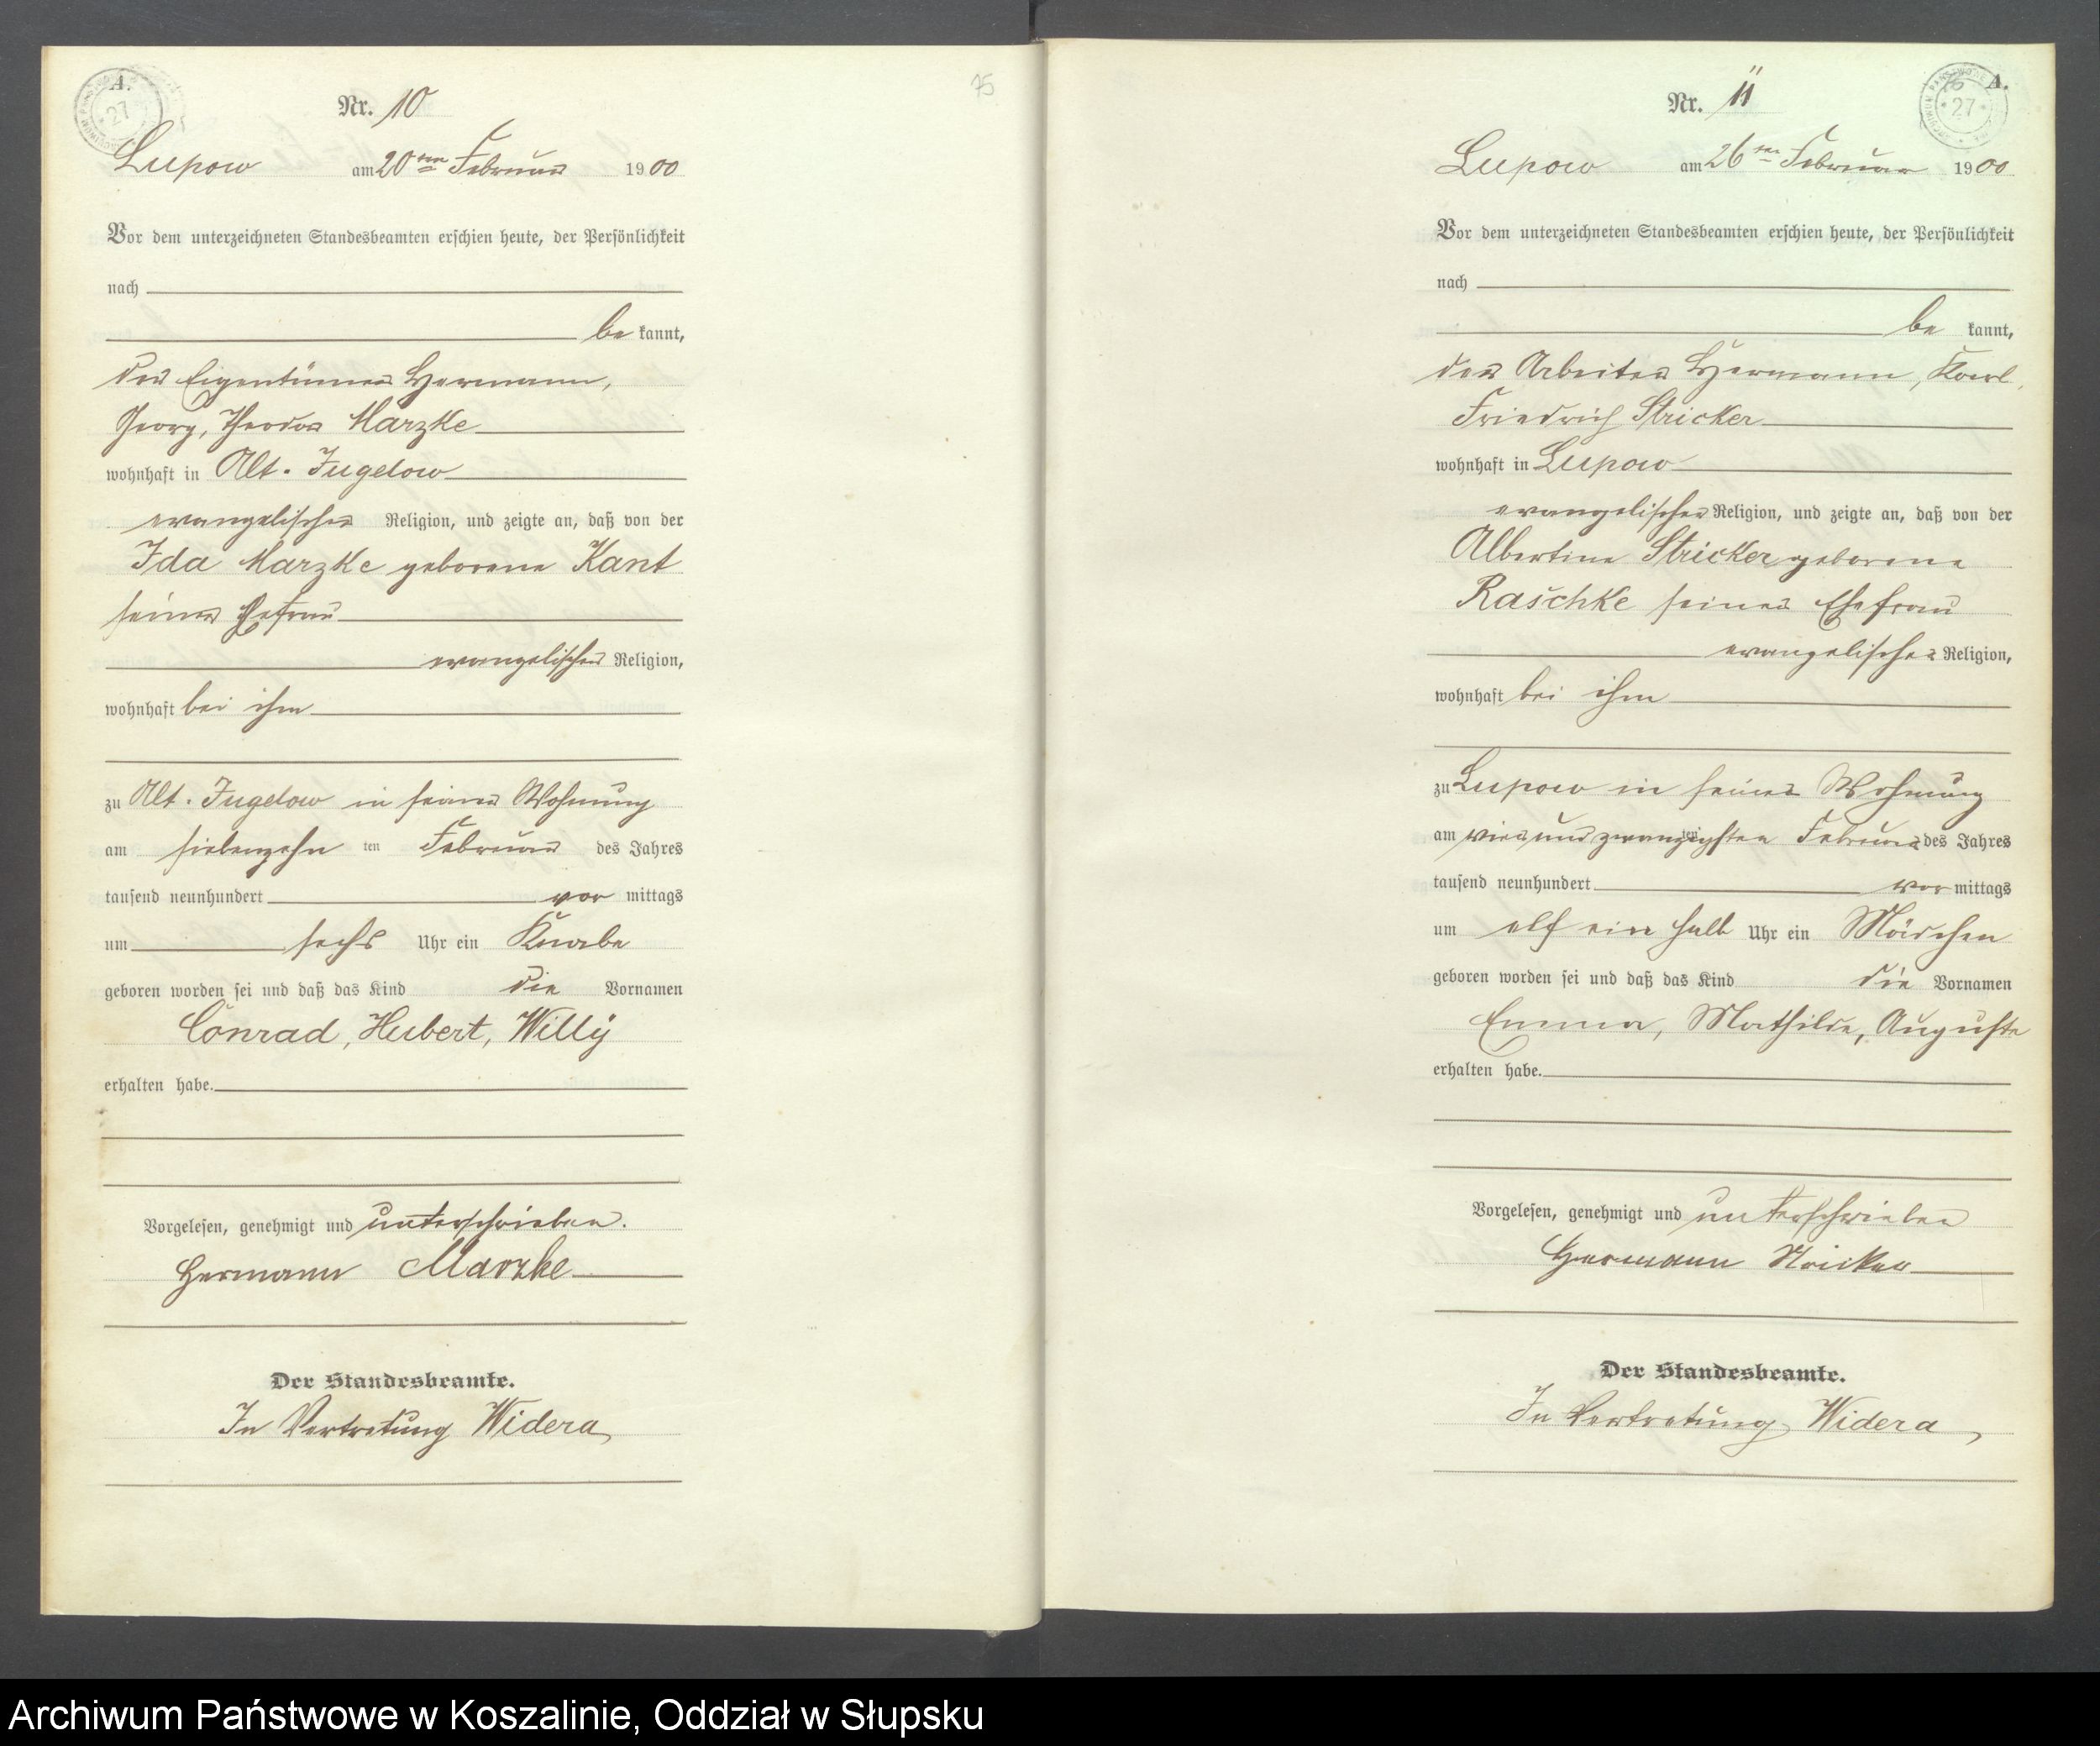 A.
Nr. 10
Lupow am 20ten Februar 1900
Vor dem unterzeichneten Standesbeamten erschien heute, der Persönlichkeit
nach
be kannt,
der Eigentümer Hermann,
Georg, Theodor Marzke
wohnhaft in Alt-Jugelow
evangelischer Religion, und zeigte an, daß von der
Ida Marzke geborene Kant
seiner Ehefrau
evangelischer Religion,
wohnhaft bei ihm
zu Alt-Jugelow in seiner Wohnung
am siebenzehn ten Februar des Jahres
tausend neunhundert vor mittags
um sechs Uhr ein Knabe
geboren worden sei und daß das Kind die Vornamen
Conrad, Hubert, Willÿ
erhalten habe.
Vorgelesen, genehmigt und unterschrieben.
Hermann Marzke
Der Standesbeamte.
In Vertretung Widera
75
A.
27
Nr. 11
Lupow am 26ten Februar 1900
Vor dem unterzeichneten Standesbeamten erschien heute, der Persönlichkeit
nach
be kannt,
der Arbeiter Hermann, Karl,
Friedrich Stricker
wohnhaft in Lupow
evangelischer Religion, und zeigte an, daß von der
Albertine Stricker geborene
Raschke seiner Ehefrau
evangelischer Religion,
wohnhaft bei ihm
zu Lupow in seiner Wohnung
am vierundzwanzigsten ten Februar des Jahres
tausend neunhundert vor mittags
um elf ein halb Uhr ein Mädchen
geboren worden sei und daß das Kind die Vornamen
Emma, Mathilde, Auguste
erhalten habe.
Vorgelesen, genehmigt und unterschrieben
Hermann Stricker
Der Standesbeamte.
In Vertretung Widera
Archiwum Państwowe w Koszalinie, Oddział w Słupsku